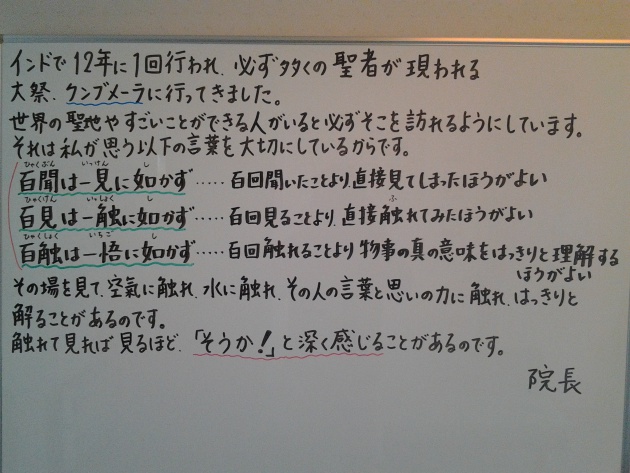 インドで12年に1回行われ、必ず多くの聖者が現われる
大祭、クンブメーラに行ってきました。
世界の聖地やすごいことができる人がいると必ずそこを訪れるようにしています。
それは私が思う以下の言葉を大切にしているからです。
ひゃくぶん いっけん し
百聞は一見に如かず……百回聞いたことより、直接見てしまったほうがよい
ひゃくけん いっしょく し ふ
百見は一触に如かず……百回見ることより、直接触れてみたほうがよい
ひゃくしょく いちご し
百触は一悟に如かず……百回触れることより物事の真の意味をはっきりと理解する
ほうがよい
その場を見て、空氣に触れ、水に触れ、その人の言葉と思いの力に触れ、はっきりと
解ることがあるのです。
触れて見れば見るほど、「そうか!」と深く感じることがあるのです。
院長